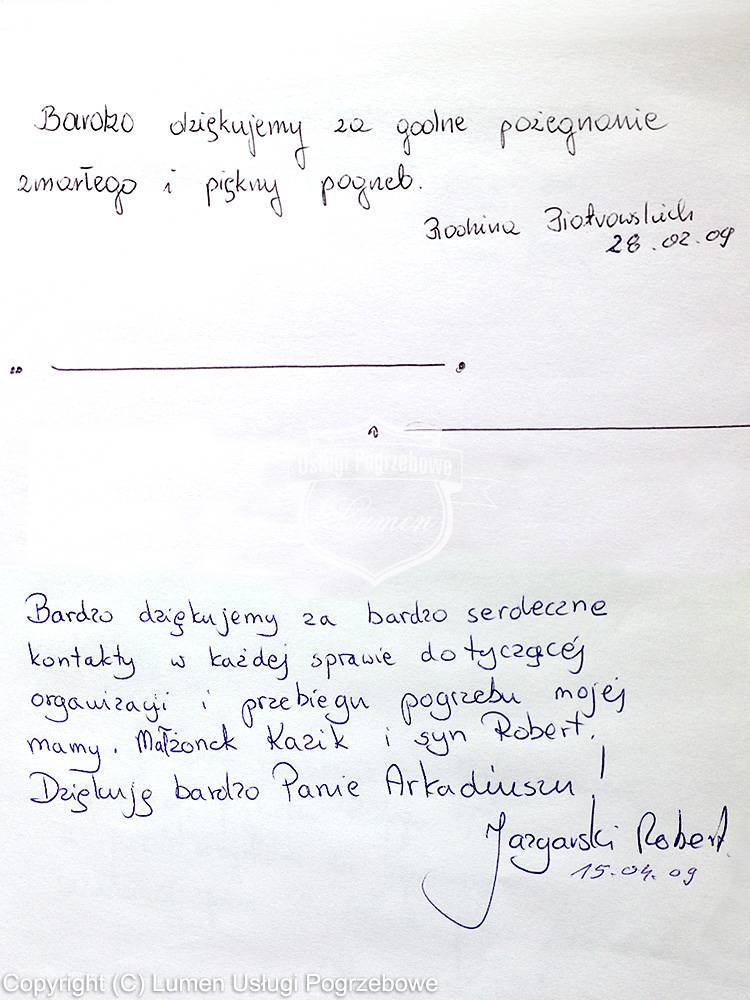 Bardzo dziękujemy za godne pożegnanie
zmarłego i piękny pogrzeb.
Rodzina Piotrowskich
28.02.09
Usługi Pogrzebowe
Lumen
Bardzo dziękujemy za bardzo serdeczne
kontakty w każdej sprawie dotyczącéj
organizacji i przebiegu pogrzebu mojej
mamy. Małżonek Kazik i syn Robert.
Dziękuję bardzo Panie Arkadiuszu!
Jazgarski Robert.
15.04.09
Copyright (C) Lumen Usługi Pogrzebowe